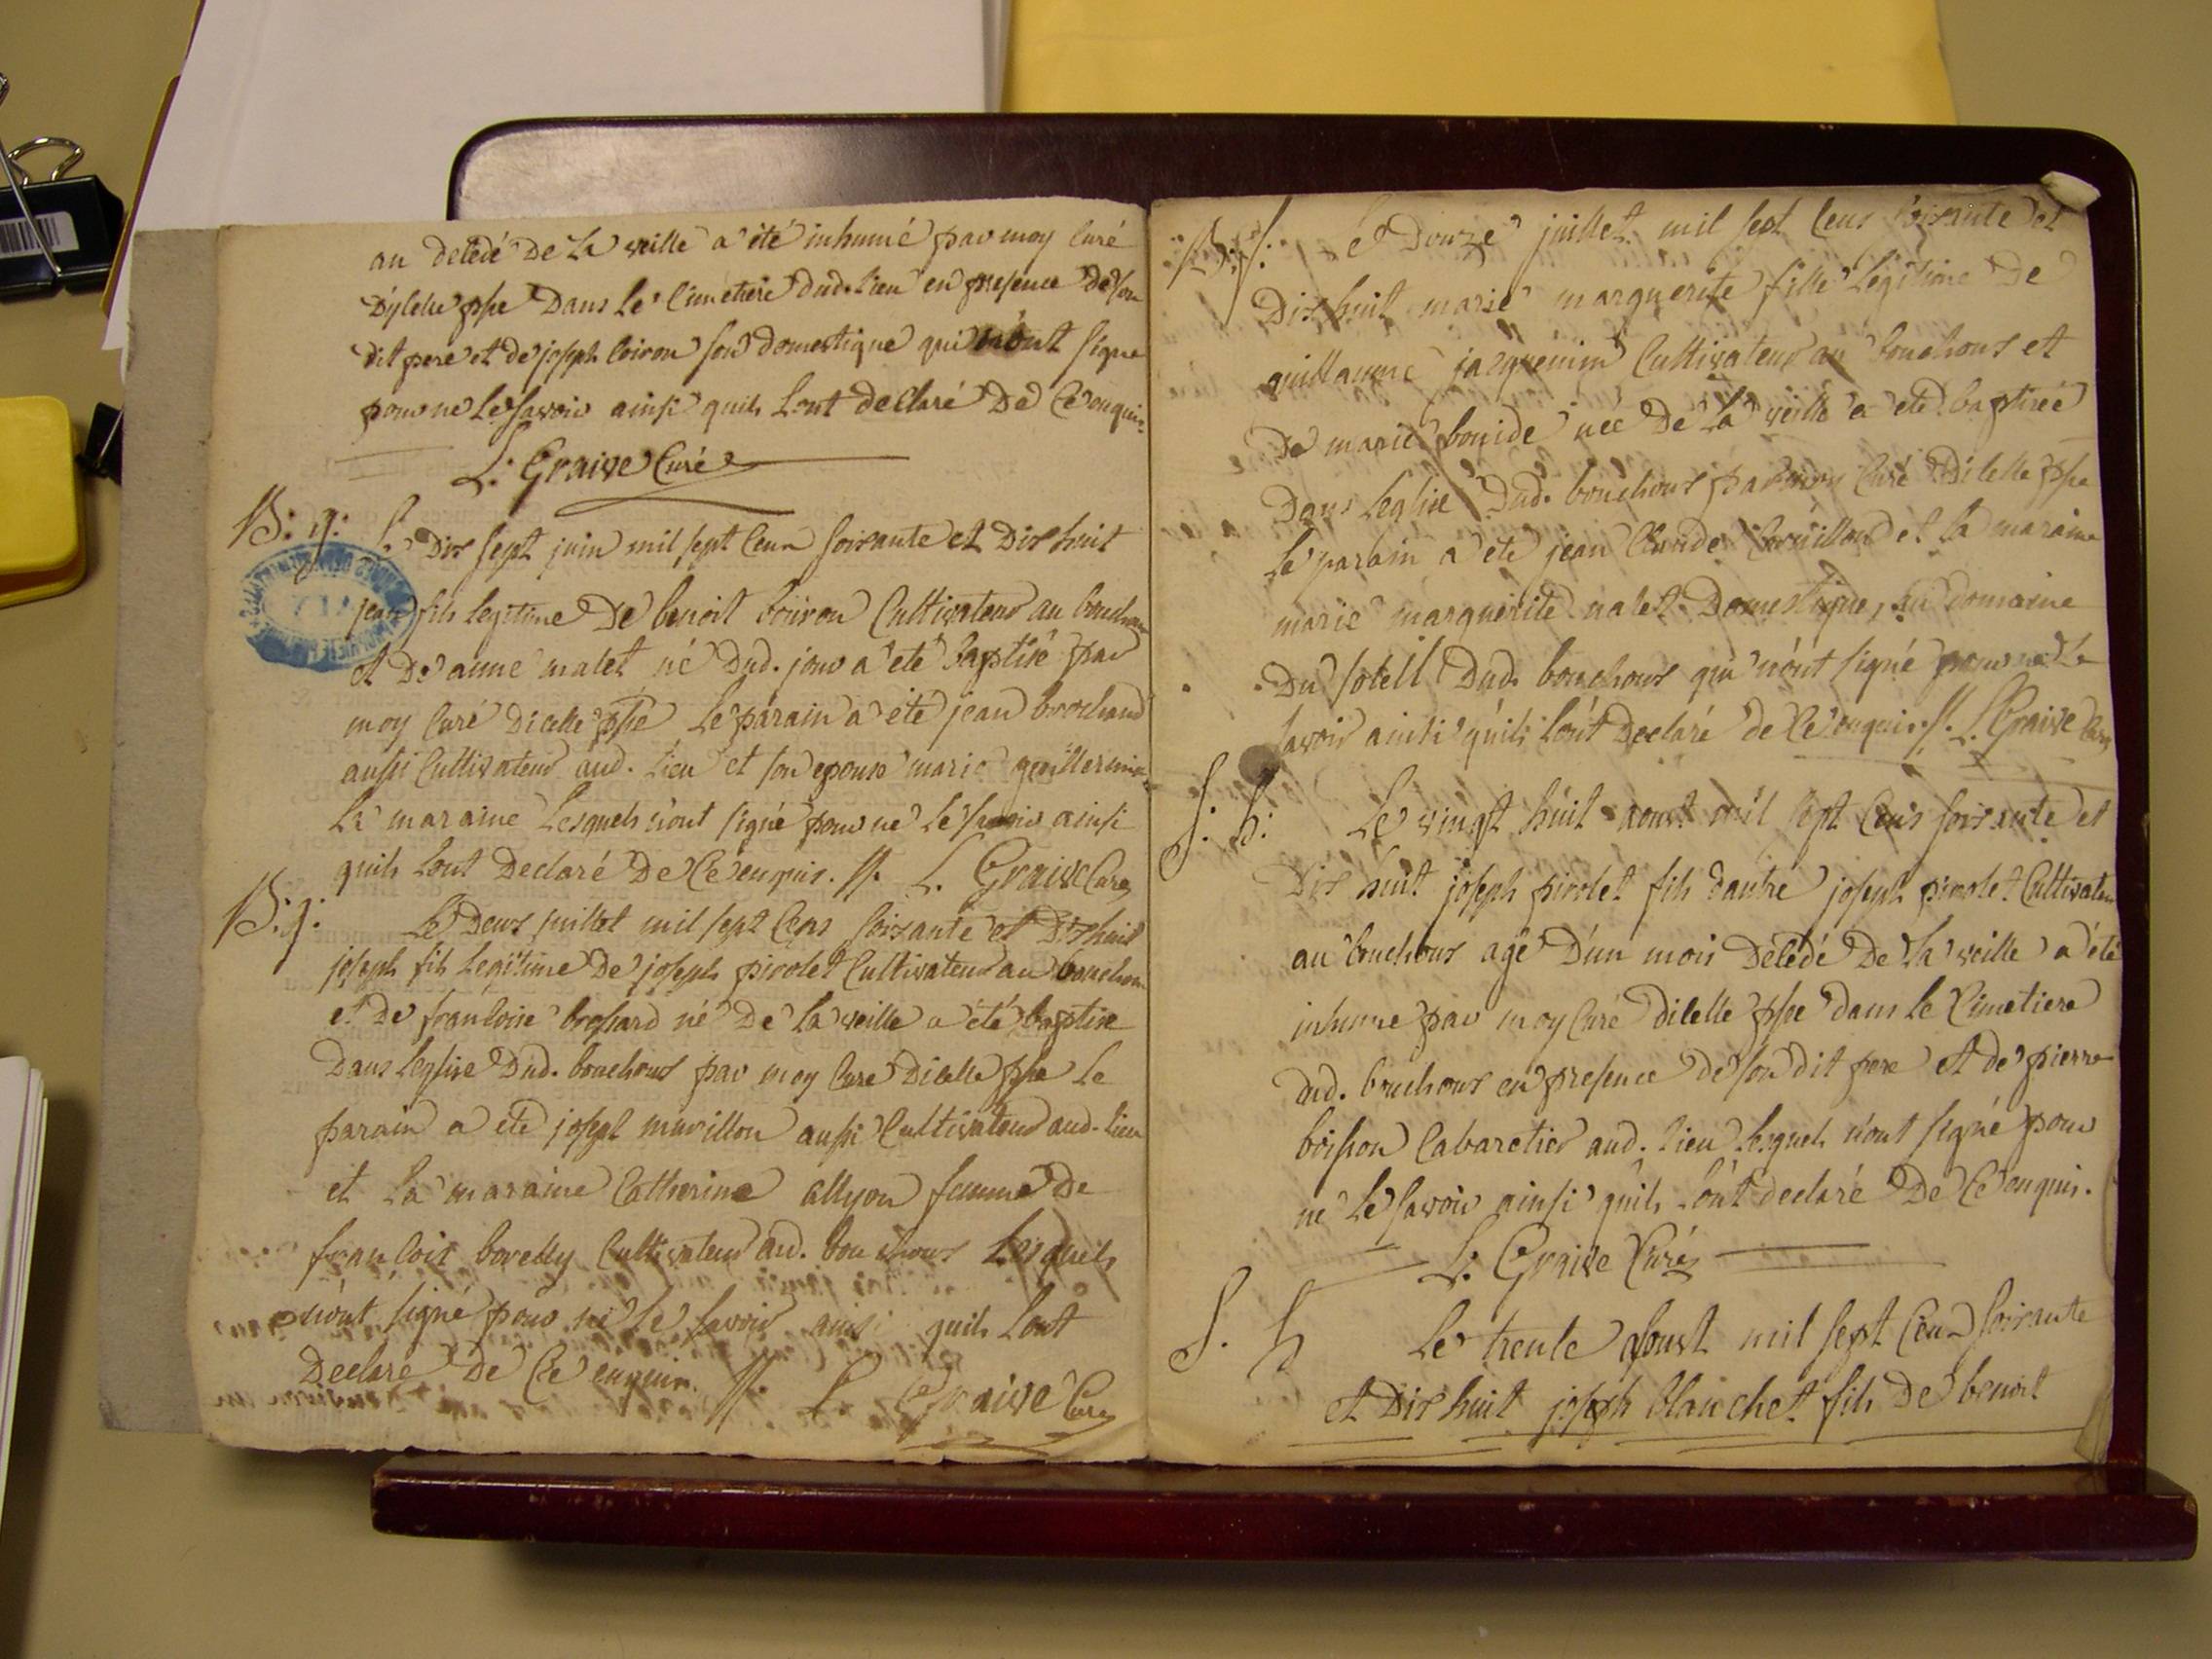 an decedé De La veille a été inhumé par moy Curé
Dycelle ppe Dans Le Cimetiere dud. Lieu en presence De son
dit pere et de joseph Coiron son Domestique qui n'ont signé
pour ne Le savoir ainsi quils Lont declaré De Ce enquis.
L. Graive Curé
B. g. Le Dix sept juin mil sept Cens soixante et Dix huit
jean fils legitime De benoit boiron Cultivateur au bouchoux
et De anne malet né Dud. jour a été baptisé par
moy Curé Dicelle ppe Le parain a été jean brochard
aussi Cultivateur aud. Lieu et son epouse marie guillermin
La maraine Lesquels n'ont signé pour ne le savoir ainsi
quils Lont Declaré De Ce enquis. //. L. Graive Curé
B. g. Le Deux juillet mil sept Cens soixante et Dix huit
joseph fils Legitime De joseph pirolet Cultivateur au bouchoux
et De francoise brossard né De La veille a été baptisé
Dans Leglise Dud. bouchoux par moy Curé Dicelle ppe Le
parain a eté joseph murillon aussi Cultivateur aud. Lieu
et La maraine Catherine allyon femme De
francois borelly Cultivateur aud. bouchoux Lesquels
n'ont signé pour ne Le savoir ainsi quils Lont
Declaré De Ce enquis. //. L. Graive Curé
B. f. Le Douze juillet mil sept Cens soixante et
Dix huit marie marguerite fille Legitime De
guillaume jacquenin Cultivateur au bouchoux et
De marie bonide née De La veille a eté baptisée
Dans Leglise Dud. bouchoux par moy Curé Dicelle ppe
Le parain a eté jean Claude et La maraine
marie marguerite valet Domestique, au Domaine
Du sotell Dud. bouchoux qui n'ont signé pour ne Le
savoir ainsi quils Lont Declaré de Ce enquis. //. L. Graive Curé
S. h. Le vingt huit aoust mil sept Cens soixante et
Dix huit joseph pirolet fils dautre joseph pirolet Cultivateur
au bouchoux agé D'un mois Décédé De La veille a été
inhumé par moy Curé dicelle ppe dans Le Cimetiere
dud. bouchoux en presence de son dit pere et de pierre
boisson Cabaretier aud. lieu Lesquels n'ont signé pour
ne Le savoir ainsi quils Lont declaré De Ce enquis.
L. Graive Curé
S. h Le trente aoust mil sept Cens soixante
et Dix huit joseph blanchet fils De benoit